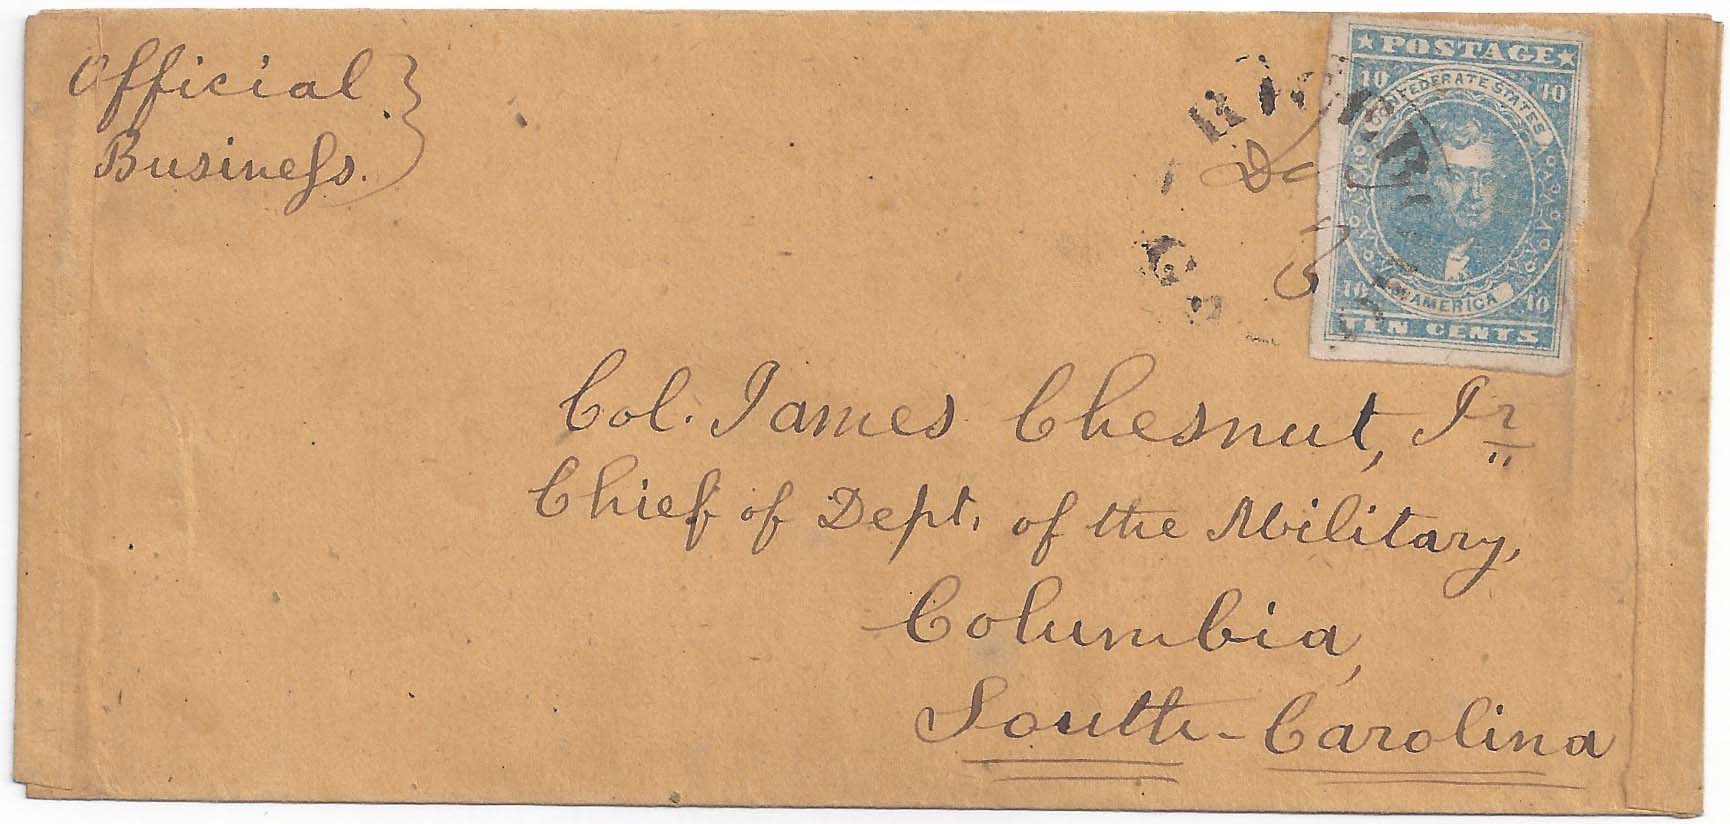 Official
Business.
★ POSTAGE ★
10 10
CONFEDERATE STATES
OF AMERICA
10 10
TEN CENTS
Col. James Chesnut, Jr
Chief of Dept. of the Military,
Columbia,
South-Carolina